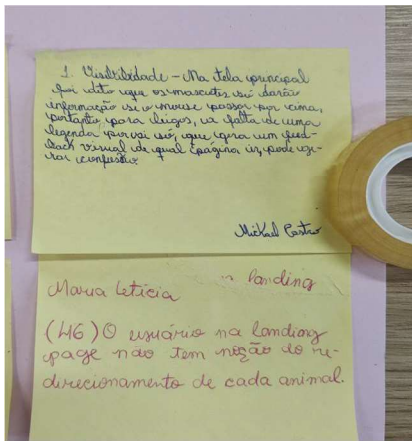 1. Visibilidade – Na tela principal
foi dito que os mascotes só darão
informação se o mouse passar por cima,
portanto, para leigos, a falta de uma
legenda por si só, que gera um feed-
back visual de qual página ir, pode ge-
rar confusão.
Mickael Castro
landing
Maria Letícia
(H6) O usuário na landing
page não tem noção do re-
direcionamento de cada animal.